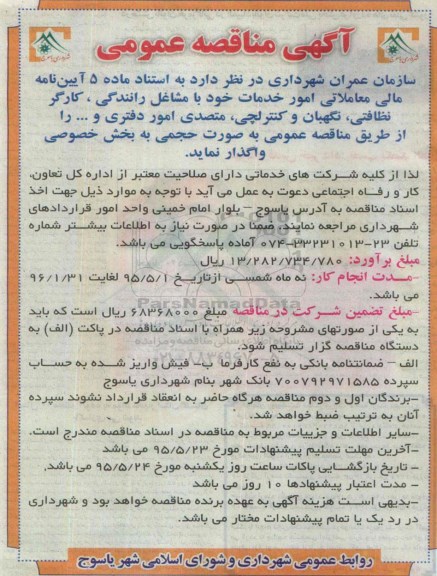 آگهی مناقصه عمومی
سازمان عمران شهرداری در نظر دارد به استناد ماده ۵ آیین‌نامه
مالی معاملاتی امور خدمات خود با مشاغل رانندگی ، کارگر
نظافتی، نگهبان و کنترلچی، متصدی امور دفتری و ... را
از طریق مناقصه عمومی به صورت حجمی به بخش خصوصی
واگذار نماید.
لذا از کلیه شرکت های خدماتی دارای صلاحیت معتبر از اداره کل تعاون،
کار و رفاه اجتماعی دعوت به عمل می آید با توجه به موارد ذیل جهت اخذ
اسناد مناقصه به آدرس یاسوج – بلوار امام خمینی واحد امور قراردادهای
شهرداری مراجعه نمایند، ضمنا در صورت نیاز به اطلاعات بیشتر شماره
تلفن ۲۳-۳۳۲۳۱۰۱۳-۰۷۴ آماده پاسخگویی می باشد.
مبلغ برآورد: ۱۳/۲۸۲/۷۳۴/۷۸۰ ریال
-مدت انجام کار: نه ماه شمسی ازتاریخ ۹۵/۵/۱ لغایت ۹۶/۱/۳۱
می باشد.
-مبلغ تضمین شرکت در مناقصه مبلغ ۶۸۳۶۸۰۰۰ ریال است که باید
به یکی از صورتهای مشروحه زیر همراه با اسناد مناقصه در پاکت (الف) به
دستگاه مناقصه گزار تسلیم شود.
الف – ضمانتنامه بانکی به نفع کارفرما ب- فیش واریز شده به حساب
سپرده ۷۰۰۷۹۲۹۷۱۵۸۵ بانک شهر بنام شهرداری یاسوج
-برندگان اول و دوم مناقصه هرگاه حاضر به انعقاد قرارداد نشوند سپرده
آنان به ترتیب ضبط خواهد شد.
-سایر اطلاعات و جزییات مربوط به مناقصه در اسناد مناقصه مندرج است.
-آخرین مهلت تسلیم پیشنهادات مورخ ۹۵/۵/۲۳ می باشد
- تاریخ بازگشایی پاکات ساعت روز یکشنبه مورخ ۹۵/۵/۲۴ می باشد.
- مدت اعتبار پیشنهادها ۱۰ روز می باشد
-بدیهی است هزینه آگهی به عهده برنده مناقصه خواهد بود و شهرداری
در رد یک یا تمام پیشنهادات مختار می باشد.
روابط عمومی شهرداری و شورای اسلامی شهر یاسوج